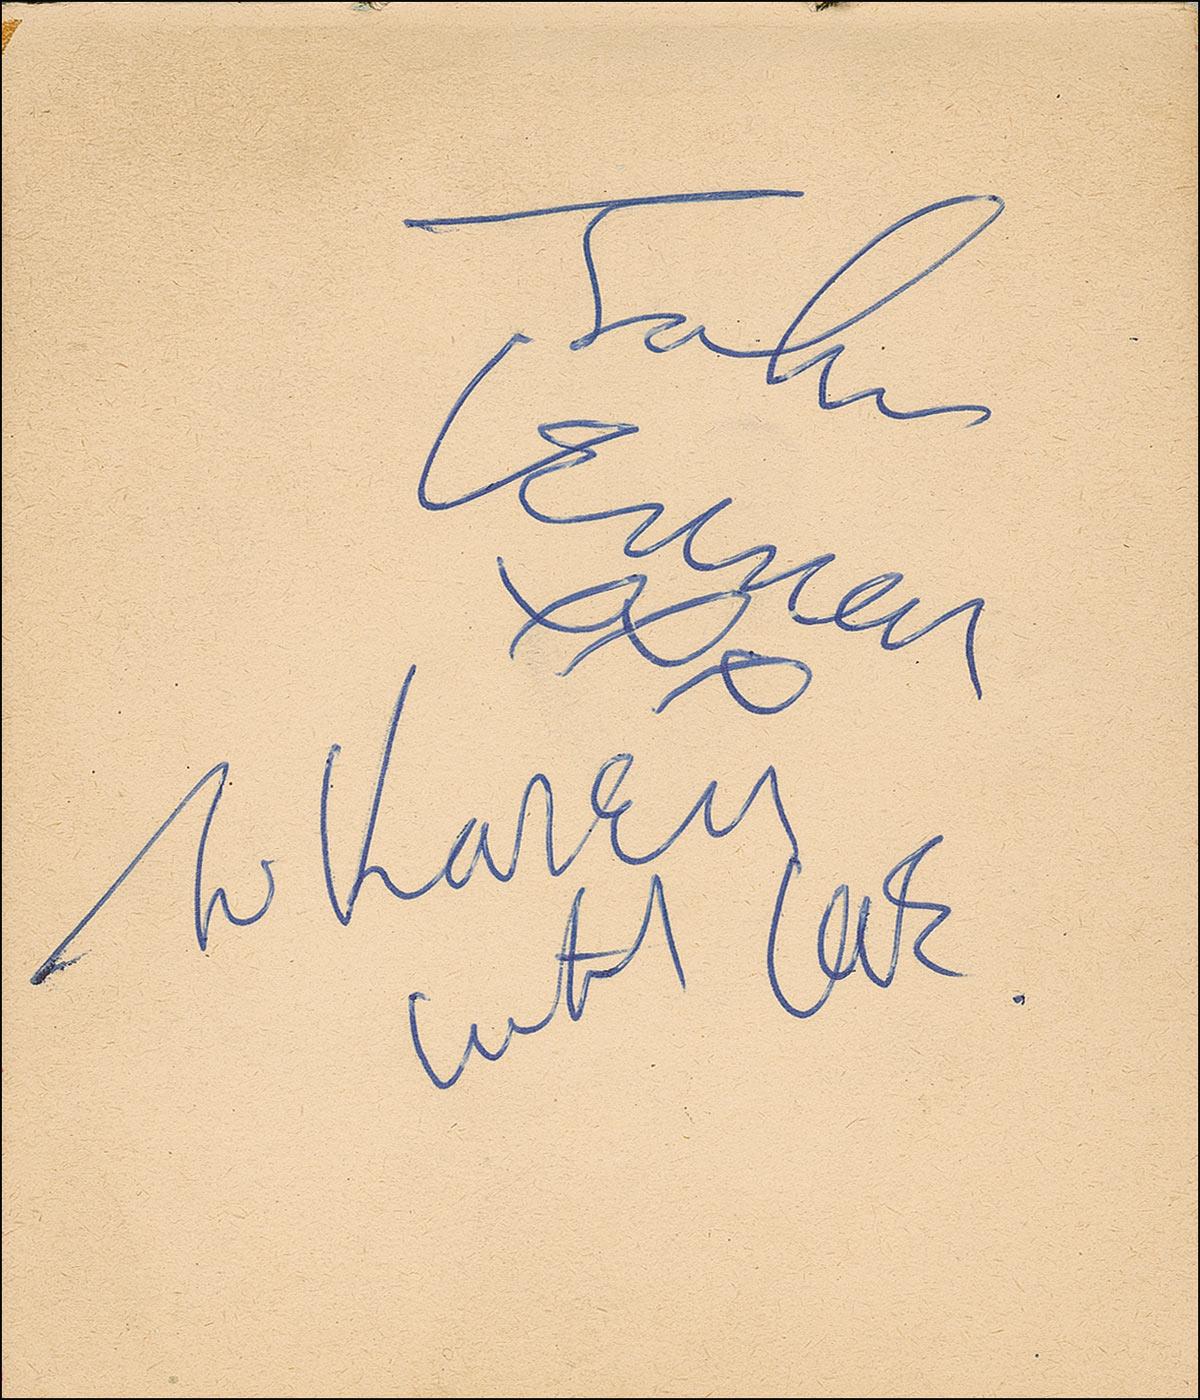 John
Lennon
xxx
to Karen
with love